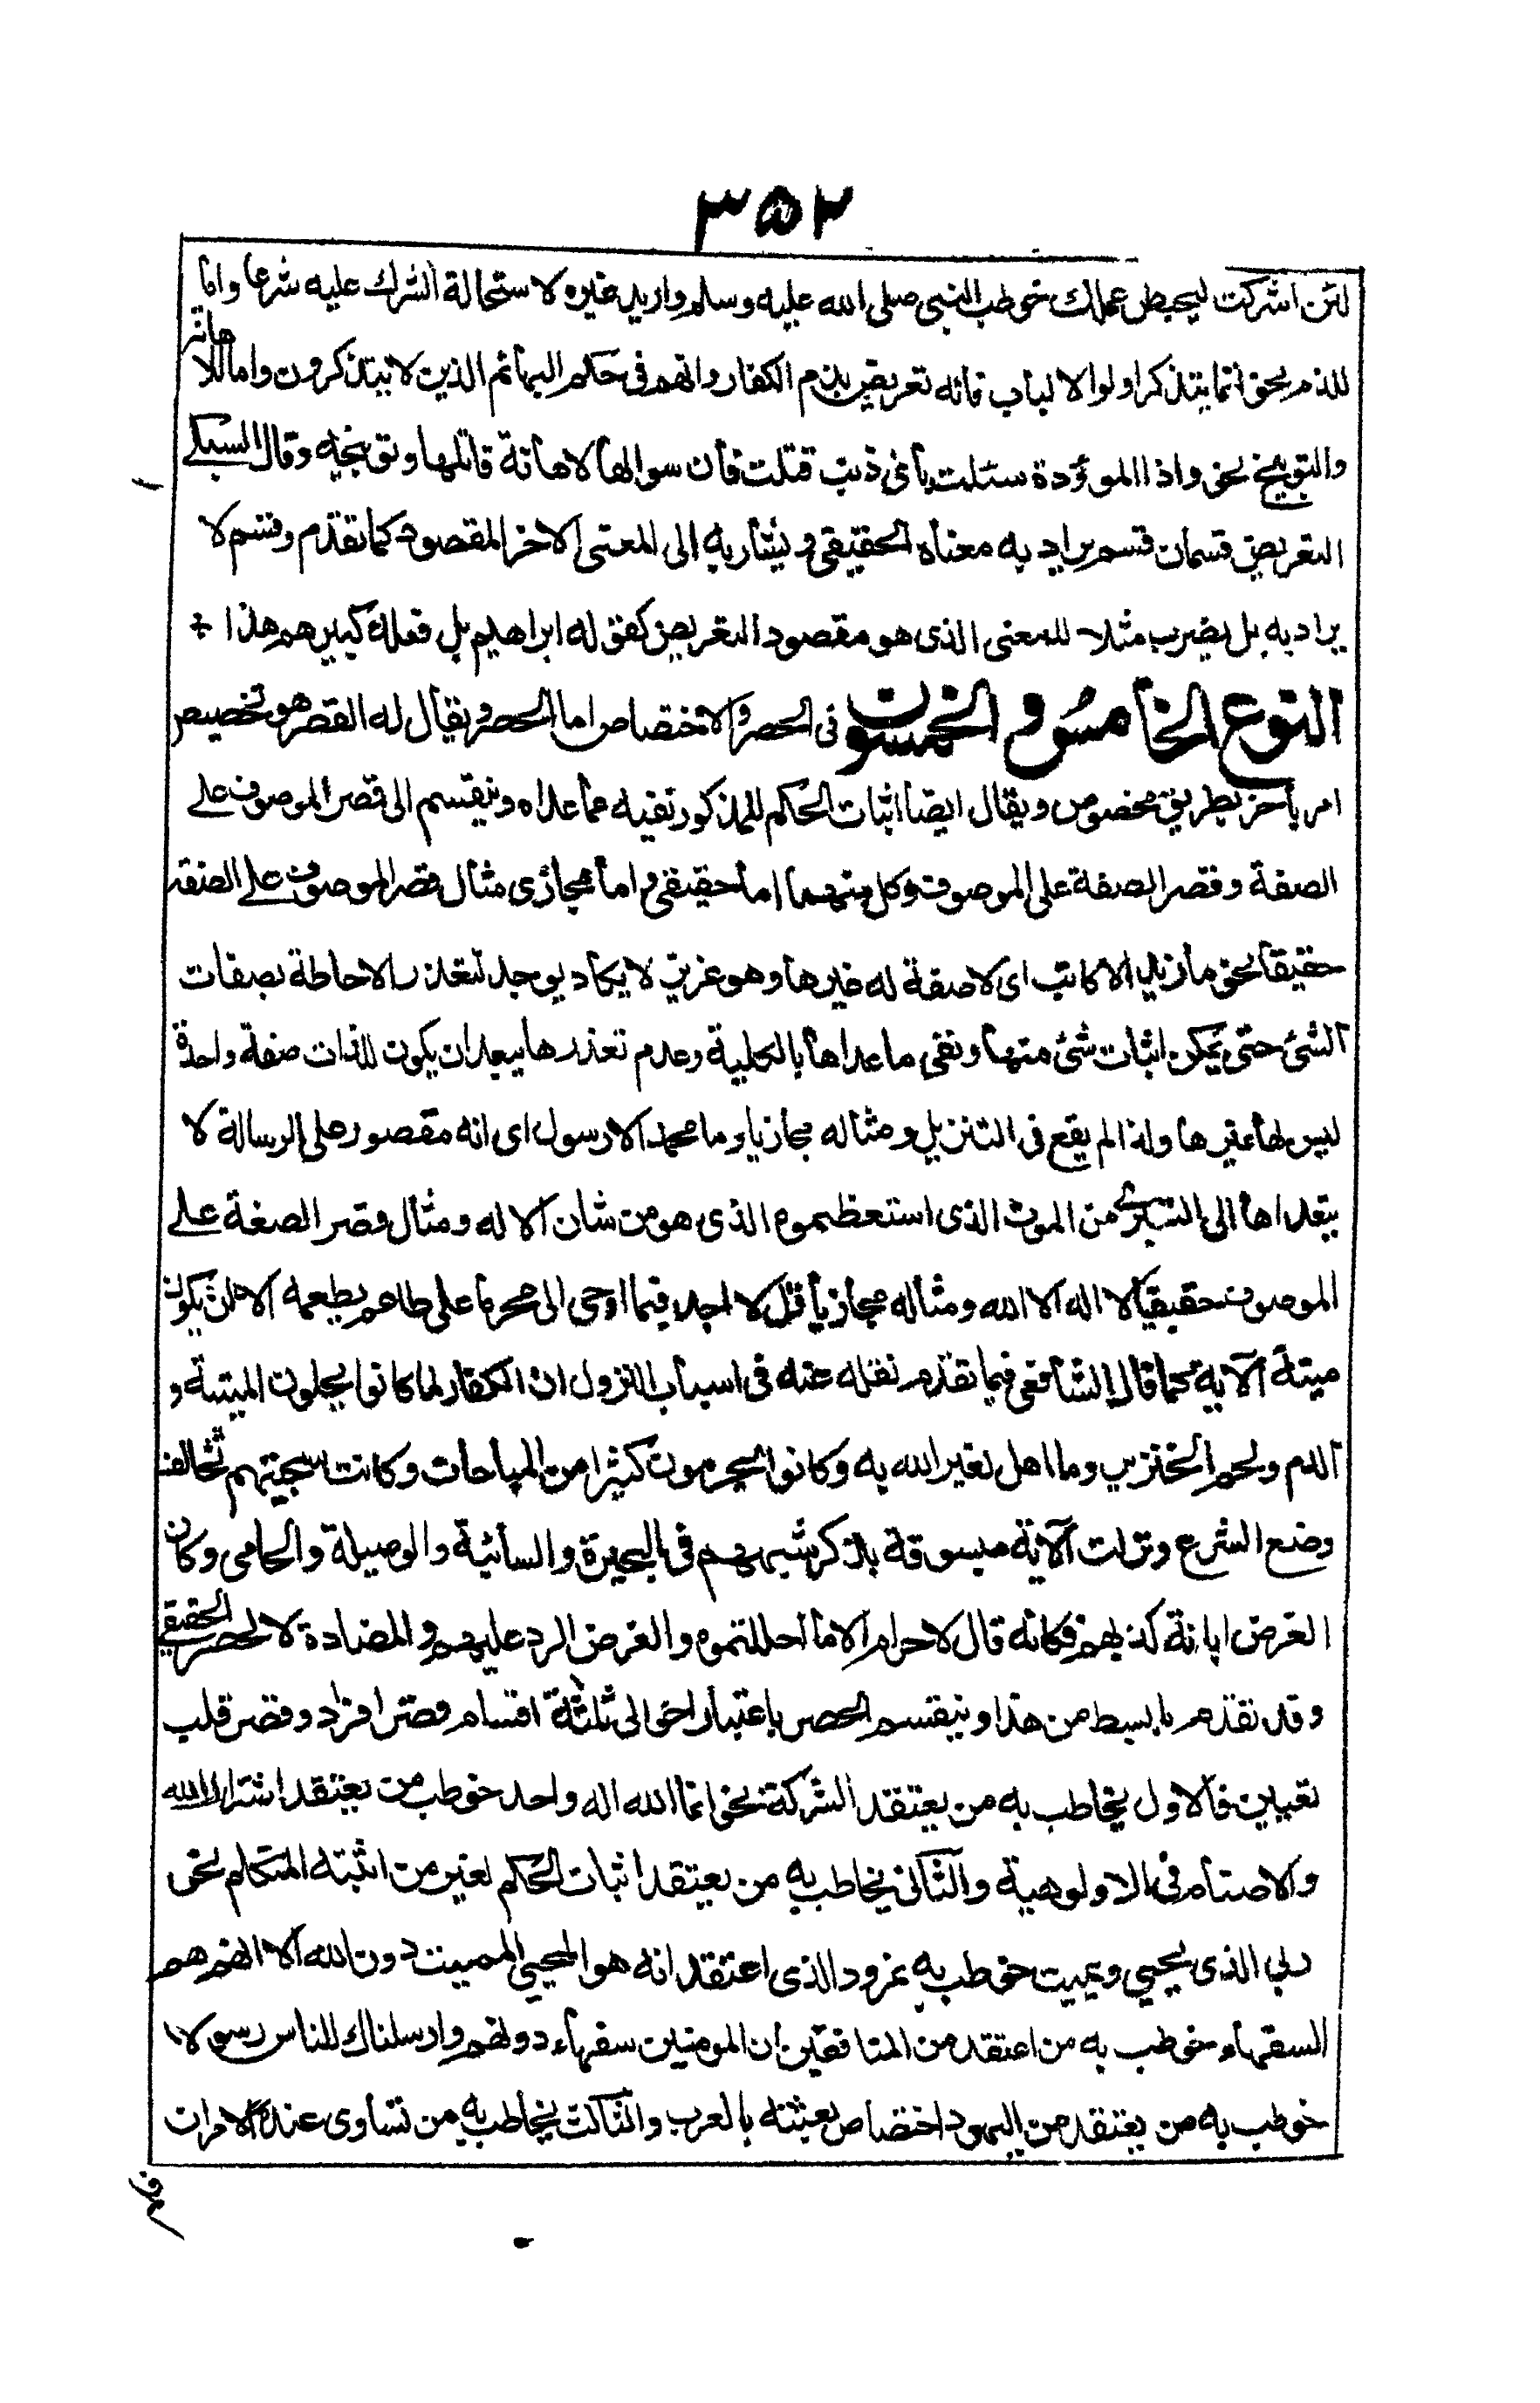 ٣٥٢
لئن اشركت ليحبطن عملك خوطب النبى صلى الله عليه وسلم واريد غيره لاستحالة الشرك عليه شرعا واما
للذم نحو انما يتذكر اولوا الالباب فانه تعريض بذم الكفار وانهم فى حكم البهائم الذين لا يتذكرون واما للاهانة
والتوبيخ نحو واذا الموؤدة سئلت بأى ذنب قتلت فأن سوالها لاهانة قاتلها وتوبيخه وقال السبكى
التعريض قسمان قسم يراد به معناه الحقيقى ويشار به الى المعنى الاخر المقصود كما تقدم وقسم لا
يراد به بل يضرب مثلا للمعنى الذى هو مقصود التعريض كقوله ابراهيم بل فعله كبيرهم هذا ÷
النوع الخامس و الخمسون فى الحصر والاختصاص اما الحصر ويقال له القصر هو تخصيص
امر بأخر بطريق مخصوص ويقال ايضا اثبات الحكم للمذكور نفيه عما عداه وينقسم الى قصر الموصوف على
الصفة وقصر الصفة على الموصوف وكل منهما اما حقيقى واما مجازى مثال قصر الموصوف على الصفة
حقيقا نحو ما زيد الا كاتب اى لا صفة له غيرها وهو عزيز لا يكاد يوجد لتعذر الاحاطة بصفات
الشئ حتى يمكن اثبات شئ منها ونفى ما عداها بالكلية وعدم تعذرها يبعد ان يكون للذات صفة واحدة
ليس لها غيرها ولذا لم يقع فى التنزيل ومثاله مجازيا وما محمد الا رسول اى انه مقصور على الرسالة لا
يتعداها الى التبرى من الموت الذى استعظموه الذى هو من شان الاله ومثال قصر الصفة على
الموصوف حقيقيا لا اله الا الله ومثاله مجازيا قل لا اجد فيما اوحى الى محرما على طاعم يطعمه الا ان يكون
ميتة الآية كما قال الشافعى فيما تقدم نقله عنه فى اسباب النزول ان الكفار لما كانوا يحلون الميتة و
الدم ولحم الخنزير وما اهل لغير الله به وكانوا يحرمون كثيرا من المباحات وكانت سجيتهم تخالف
وضع الشرع ونزلت الآية مسوقة بذكر شبههم فى البحيرة والسائبة والوصيلة والحامى وكان
الغرض ابانة كذبهم فكانه قال لا حرام الا ما احللتموه والغرض الرد عليهم والمضادة لا الحصر الحقيقى
وقد تقدم بابسط من هذا وينقسم الحصر باعتبار اخر الى ثلثة اقسام قصر افراد وقصر قلب
تعيين فالاول يخاطب به من يعتقد الشركة نحو انما الله اله واحد خوطب من يعتقد اشتراك الله
والاصنام فى الاولوهية والثانى يخاطب به من يعتقد اثبات الحكم لغير من اثبته المتكلم نحو
ربى الذى يحيى ويميت خوطب به نمرود الذى اعتقد انه هو المحيى المميت دون الله الا انهم هم
السفهاء خوطب به من اعتقد من المنافقين ان المومنين سفهاء دونهم وارسلناك للناس رسولا
خوطب به من يعتقد من اليهود اختصاص بعثته بالعرب والثالث يخاطب به من تساوى عنده الامران